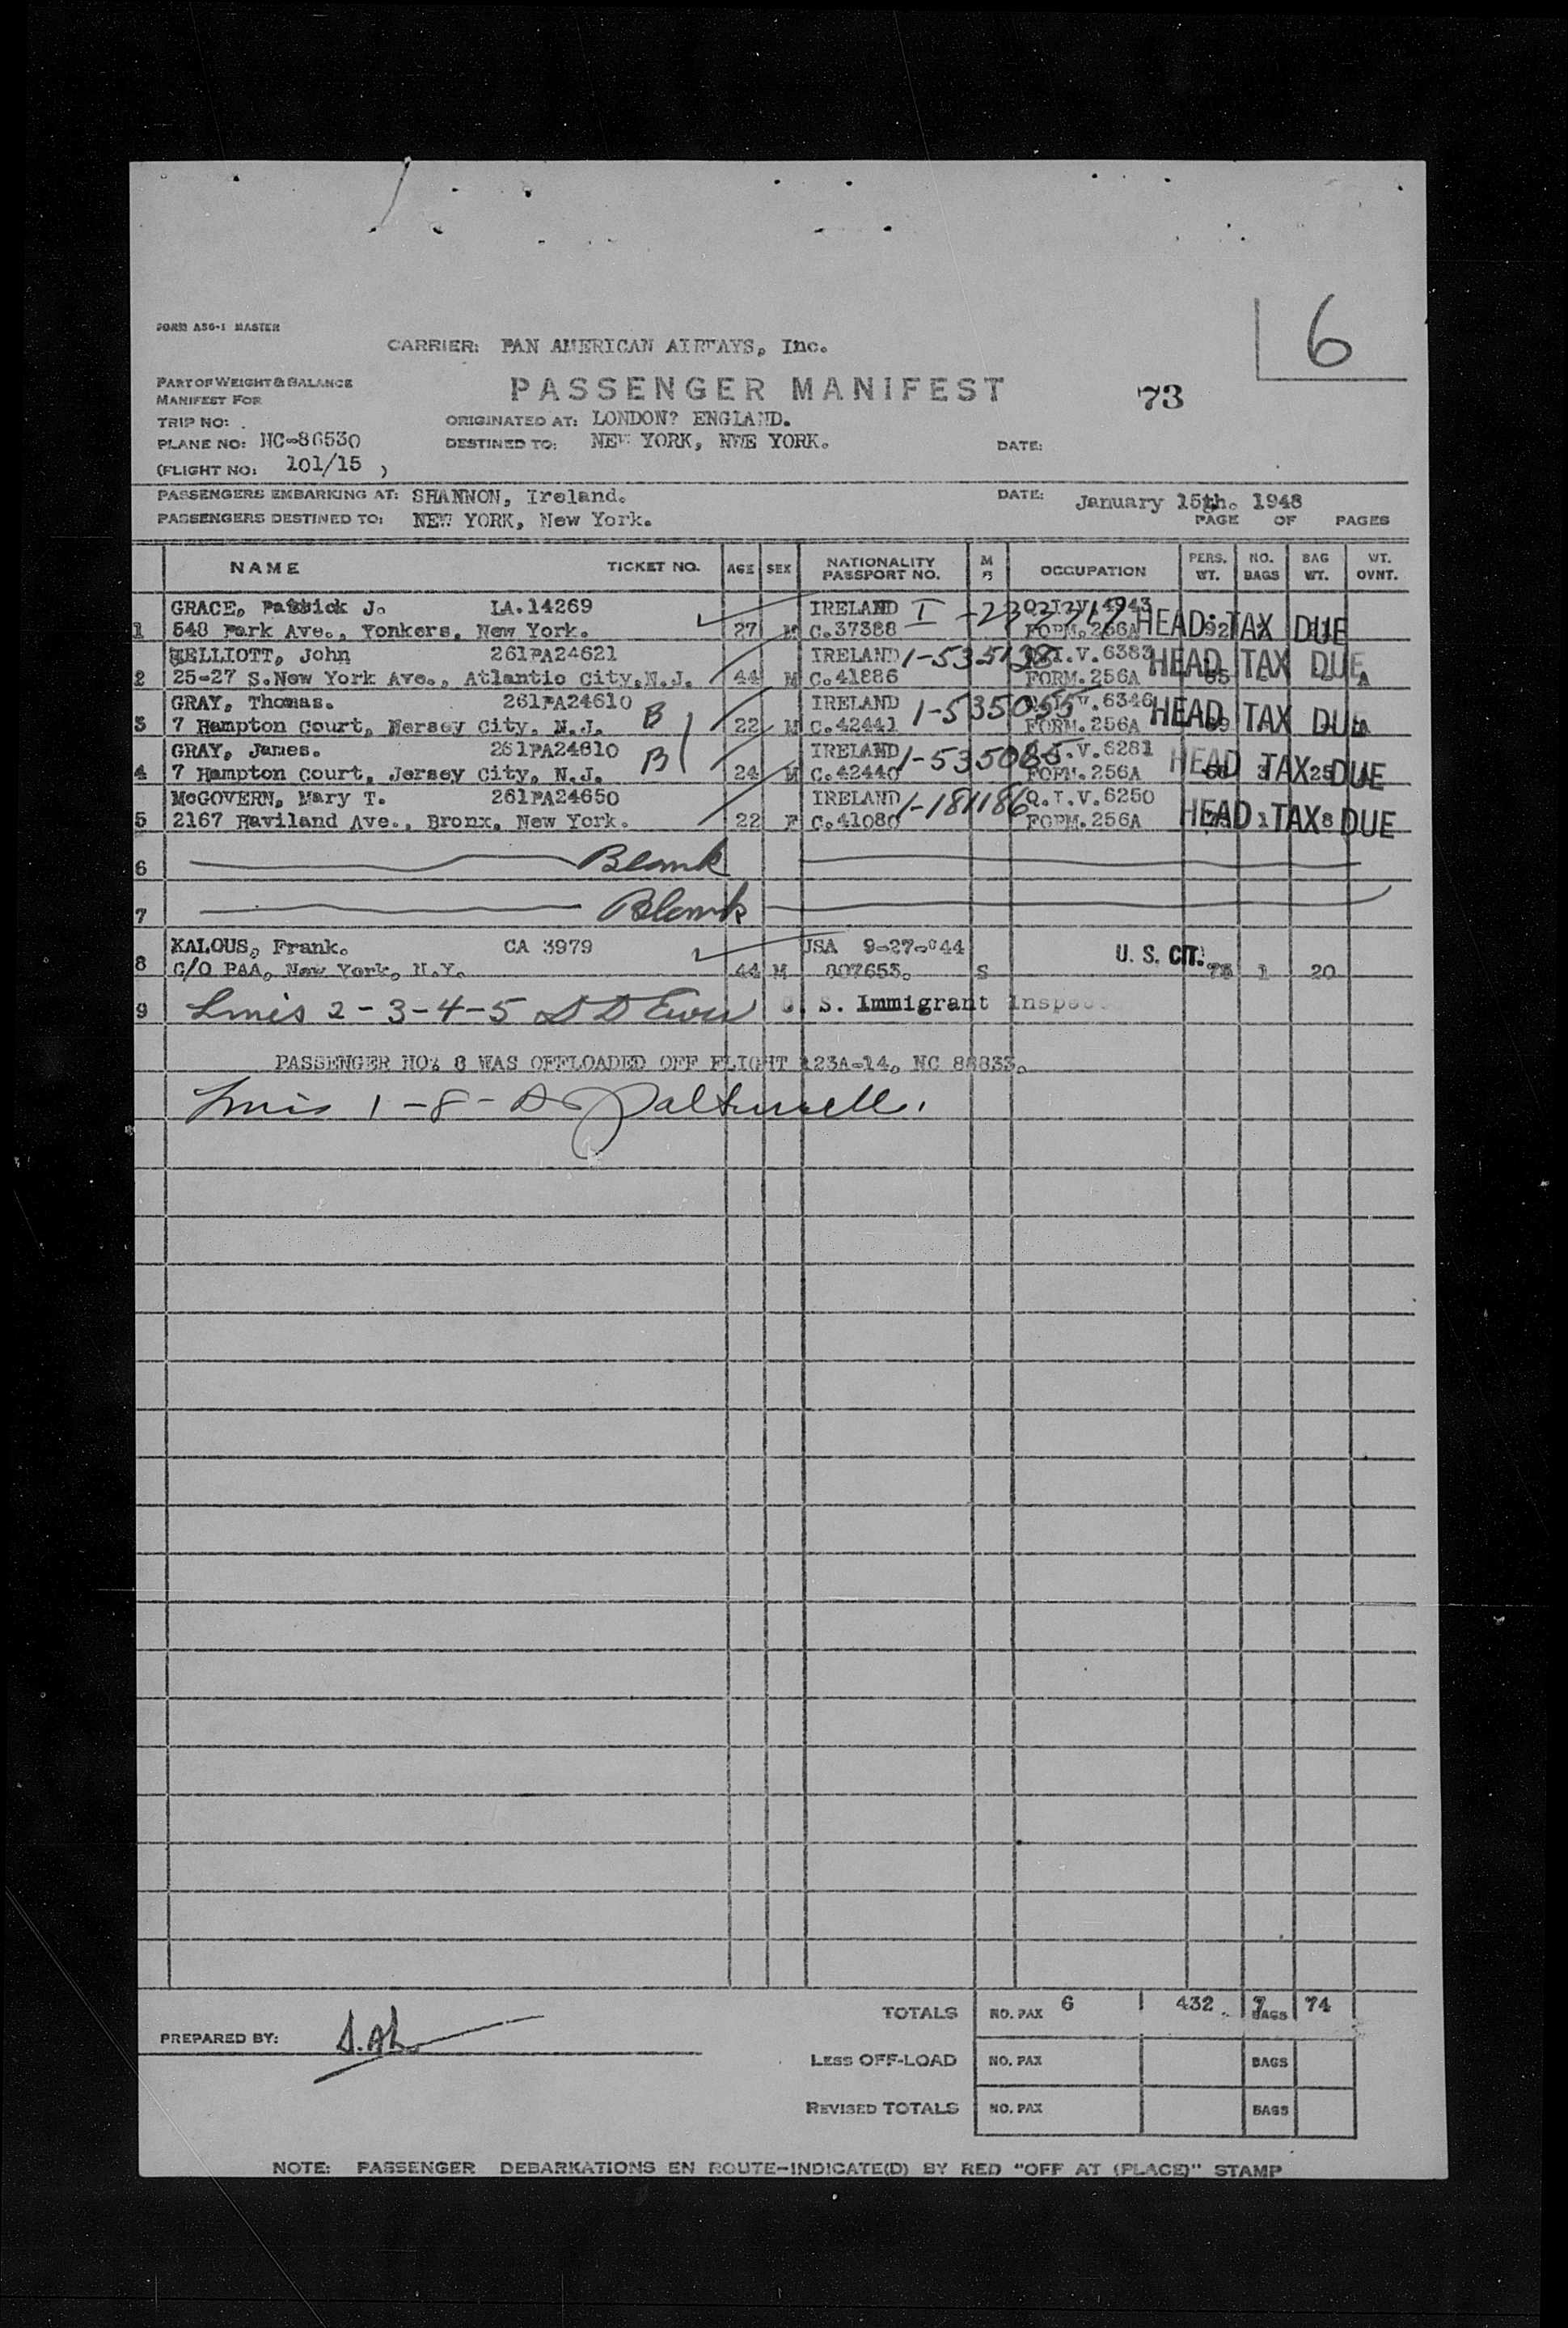 FORM A56-1 MASTER
6
CARRIER: PAN AMERICAN AIRWAYS, Inc.
PART OF WEIGHT & BALANCE
MANIFEST FOR
PASSENGER MANIFEST 73
TRIP NO: . ORIGINATED AT: LONDON? ENGLAND.
PLANE NO: NC-86530 DESTINED TO: NEW YORK, NWE YORK. DATE:
(FLIGHT NO: 101/15 )
PASSENGERS EMBARKING AT: SHANNON, Ireland. DATE: January 15th. 1948
PASSENGERS DESTINED TO: NEW YORK, New York. PAGE OF PAGES
NAME TICKET NO. AGE SEX NATIONALITY PASSPORT NO. M OCCUPATION PERS. WT. NO. BAGS BAG WT. WT. OVNT.
GRACE, Patrick J. LA.14269 IRELAND I Q.I.V.4943 HEAD TAX DUE
1 548 Park Ave., Yonkers, New York. 27 M C.37388 FORM.256A
ELLIOTT, John 261PA24621 IRELAND 1-535138 Q.I.V.6383 HEAD TAX DUE
2 25-27 S.New York Ave., Atlantic City,N.J. 44 M C.41886 FORM.256A
GRAY, Thomas. 261PA24610 B IRELAND 1-535055 Q.I.V.6346 HEAD TAX DUE
3 7 Hampton Court, Nersey City, N.J. 22 M C.42441 FORM.256A
GRAY, James. 261PA24610 B IRELAND 1-535085 Q.I.V.6281 HEAD TAX DUE
4 7 Hampton Court, Jersey City, N.J. 24 M C.42440 FORM.256A 25
McGOVERN, Mary T. 261PA24650 IRELAND 1-181186 Q.I.V.6250 HEAD TAX DUE
5 2167 Haviland Ave., Bronx, New York. 22 F C.41080 FORM.256A 1 8
6 Blank
7 Blank
KALOUS, Frank. CA 3979 USA 9-27-'44 U. S. CIT.
8 C/O PAA, New York, N.Y. 44 M 807653. S 75 1 20
9 Lines 2-3-4-5 U. S. Immigrant Inspec
PASSENGER NO% 8 WAS OFFLOADED OFF FLIGHT 123A-14, NC 88833.
Lines 1-8-
TOTALS NO. PAX 6 432 7 BAGS 74
PREPARED BY:
LESS OFF-LOAD NO. PAX BAGS
REVISED TOTALS NO. PAX BAGS
NOTE: PASSENGER DEBARKATIONS EN ROUTE-INDICATE(D) BY RED "OFF AT (PLACE)" STAMP